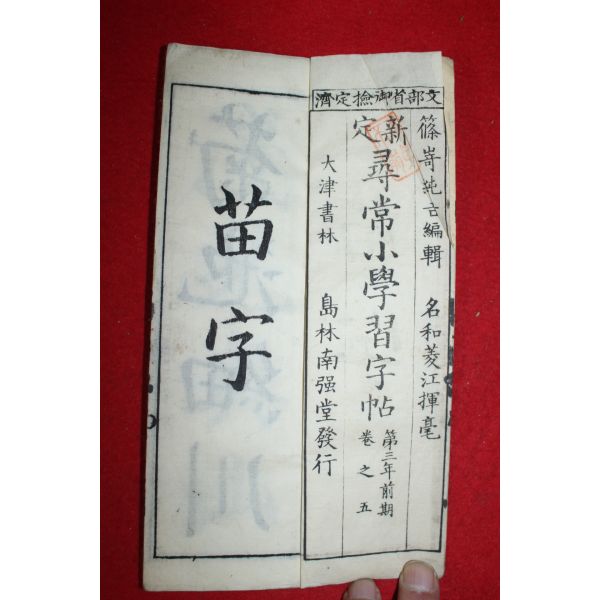 文部省御撿定濟
篠嵜純吉編輯　名和菱江揮毫
新定尋常小學習字帖　第三年前期　卷之五
大津書林　島林南强堂發行
苗字